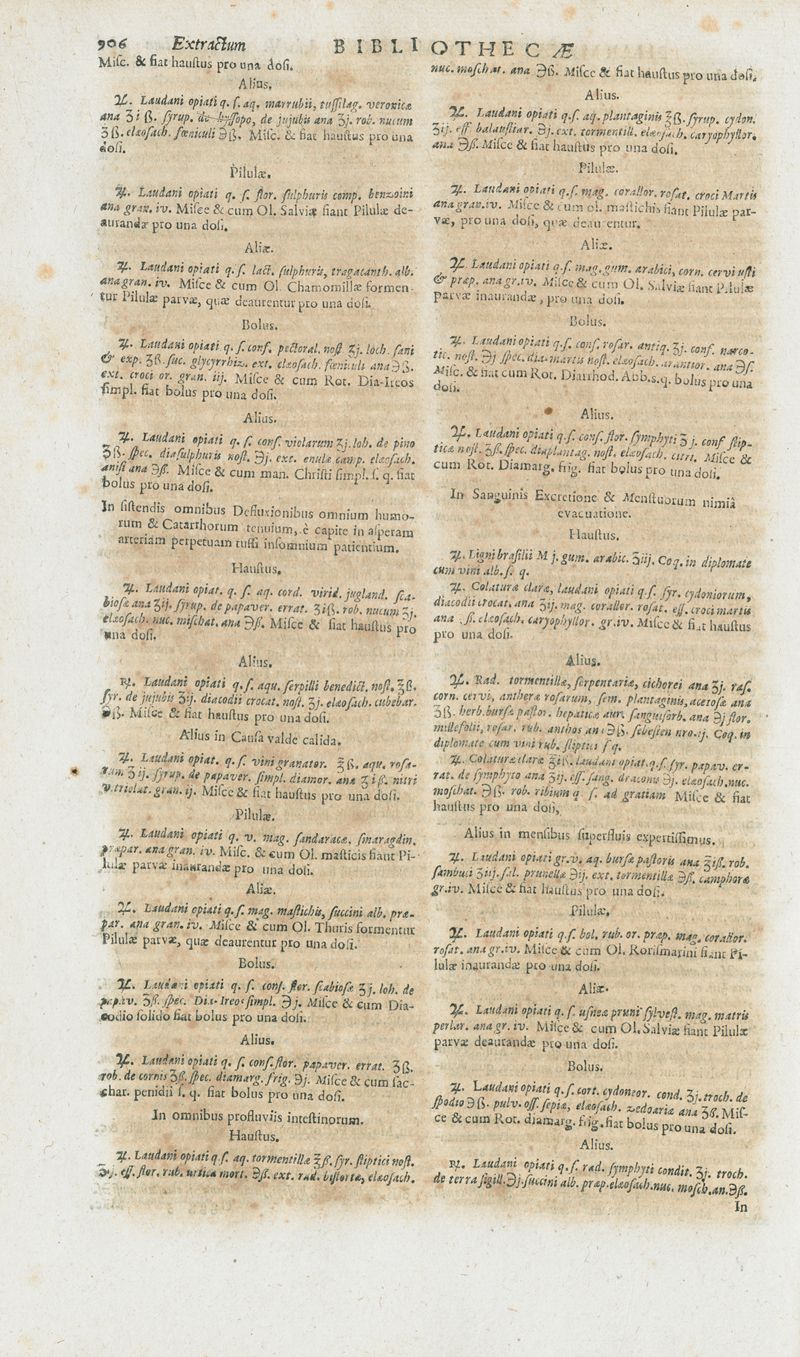 906 Extractum BIBLIOTHECÆ
Misc. & fiat haustus pro una dosi.
Alius.
℞. Laudani opiati q. s. aq. marrubii, tussilag. veronicæ
ana ℥i ß. syrup. de hyssopo, de jujubis ana ʒj. rob. nucum
ʒß. elæosach. fœniculi ℈ß. Misc. & fiat haustus pro una
dosi.
Pilulæ.
℞. Laudani opiati q. s. flor. sulphuris comp. benzoini
ana gran. iv. Misce & cum Ol. Salviæ fiant Pilulæ de-
aurandæ pro una dosi.
Aliæ.
℞. Laudani opiati q. s. lact. sulphuris, tragacanth. alb.
ana gran. iv. Misce & cum Ol. Chamomillæ formen-
tur Pilulæ parvæ, quæ deaurentur pro una dosi.
Bolus.
℞. Laudani opiati q. s. conf. pectoral. nost ʒj. loch. sani
& exp. ʒß. suc. glycyrrhiz. ext. elæosach. fœniculi ana ℈ß.
ext. croci or. gran. iij. Misce & cum Rot. Dia-Ireos
simpl. fiat bolus pro una dosi.
Alius.
℞. Laudani opiati q. s. conf. violarum ʒj. loh. de pino
ʒß. spec. diasulphuris nost. ℈j. ext. enulæ camp. elæosach.
anisi ana ℈ß. Misce & cum man. Christi simpl. s. q. fiat
bolus pro una dosi.
In sistendis omnibus Defluxionibus omnium humo-
rum & Catarrhorum tenuium, è capite in asperam
arteriam perpetuam tussi insomnium patientium.
Haustus.
℞. Laudani opiat. q. s. aq. cord. virid. jugland. sca-
biosæ ana ʒij. syrup. de papaver. errat. ʒiß. rob. nucum ʒj.
elæosach. nuc. mischat. ana ℈ß. Misce & fiat haustus pro
una dosi.
Alius.
℞. Laudani opiati q. s. aqu. serpilli benedict. nost. ℥ß.
syr. de jujubis ʒij. diacodii crocat. nost. ʒj. elæosach. cubebar.
℈ß. Misce & fiat haustus pro una dosi.
Alius in Causa valde calida.
℞. Laudani opiat. q. s. vini granator. ℥ß. aqu. rosa-
rum ʒij. syrup. de papaver. simpl. diamor. ana ʒiß. nitri
vitriolat. gran. ij. Misce & fiat haustus pro una dosi.
Pilulæ.
℞. Laudani opiati q. v. mag. sandaracæ, smaragdin.
præpar. ana gran. iv. Misc. & cum Ol. masticis fiant Pi-
lulæ parvæ inaurandæ pro una dosi.
Aliæ.
℞. Laudani opiati q. s. mag. mastichis, succini alb. præ-
par. ana gran. iv. Misce & cum Ol. Thuris formentur
Pilulæ parvæ, quæ deaurentur pro una dosi.
Bolus.
℞. Laudani opiati q. s. conf. flor. scabiosæ ʒj. loh. de
papav. ʒß. spec. Dia-Ireos simpl. ℈j. Misce & cum Dia-
codio solido fiat bolus pro una dosi.
Alius.
℞. Laudani opiati q. s. conf. flor. papaver. errat. ʒß.
rob. de cornis ʒß. spec. diamarg. frig. ℈j. Misce & cum sac-
char. penidii s. q. fiat bolus pro una dosi.
In omnibus profluviis intestinorum.
Haustus.
℞. Laudani opiati q. s. aq. tormentillæ ℥ß. syr. stiptici nost.
ʒij. ess. flor. rub. urticæ mort. ℈ß. ext. rad. bistortæ, elæosach.
nuc. moschat. ana ℈ß. Misce & fiat haustus pro una dosi.
Alius.
℞. Laudani opiati q. s. aq. plantaginis ℥ß. syrup. cydon.
ʒij. ess balaustiar. ℈j. ext. tormentill. elæosach. caryophyllor.
ana ℈ß. Misce & fiat haustus pro una dosi.
Pilulæ.
℞. Laudani opiati q. s. mag. corallor. rosat. croci Martis
ana gran. iv. Misce & cum ol. mastichis fiant Pilulæ par-
væ, pro una dosi, quæ deaurentur.
Aliæ.
℞. Laudani opiati q. s. mag. gum. arabici, corn. cervi usti
& præp. ana gr. iv. Misce & cum Ol. Salviæ fiant Pilulæ
parvæ inaurandæ, pro una dosi.
Bolus.
℞. Laudani opiati q. s. conf. rosar. antiq. ʒj. conf. narco-
tic. nost. ℈j spec. dia-martis nost. elæosach. arantior. ana ℈ß.
Misc. & fiat cum Rot. Diarrhod. Abb. s. q. bolus pro una
dosi.
Alius.
℞. Laudani opiati q. s. conf. flor. symphyti ʒj. conf stip-
ticæ nost. ʒß. spec. diaplantag. nost. elæosach. citri. Misce &
cum Rot. Diamarg. frig. fiat bolus pro una dosi.
In Sanguinis Excretione & Menstuorum nimiâ
evacuatione.
Haustus.
℞. Ligni brasilii M j. gum. arabic. ʒiij. Coq. in diplomate
cum vini alb. s. q.
℞. Colaturæ claræ, laudani opiati q. s. syr. cydoniorum,
diacodii crocat. ana ʒij. mag. corallor. rosat. ess. croci martis
ana ß. elæosach. caryophyllor. gr. iv. Misce & fiat haustus
pro una dosi.
Alius.
℞. Rad. tormentillæ, serpentariæ, cichorei ana ʒj. ras.
corn. cervi, antheræ rosarum, sem. plantaginis, acetosæ ana
ʒß. herb. bursæ pastor. hepaticæ aur. sanguisorb. ana ℈j flor.
millefolii, rosar. rub. anthos ana ℈ß. sebesten nro. ij. Coq. in
diplomate cum vini rub. stiptici s q.
℞. Colaturæ claræ ʒiß. laudani opiat. q. s. syr. papav. er-
rat. de symphyto ana ʒij. ess. sang. draconis ℈j. elæosach. nuc.
moschat. ℈ß. rob. ribium q s. ad gratiam Misce & fiat
haustus pro una dosi.
Alius in mensibus superfluis expertissimus.
℞. Laudani opiati gr. v. aq. bursæ pastoris ana ℥iß. rob.
sambuci ʒiij. sal. prunellæ ℈ij. ext. tormentillæ ℈ß. camphoræ
gr. iv. Misce & fiat haustus pro una dosi.
Pilulæ.
℞. Laudani opiati q. s. bol. rub. or. præp. mag. corallor.
rosat. ana gr. iv. Misce & cum Ol. Rorismarini fiant Pi-
lulæ inaurandæ pro una dosi.
Aliæ.
℞. Laudani opiati q. s. usneæ pruni sylvest. mag. matris
perlar. ana gr. iv. Misce & cum Ol. Salviæ fiant Pilulæ
parvæ deaurandæ pro una dosi.
Bolus.
℞. Laudani opiati q. s. cort. cydoneor. cond. ʒj. troch. de
spodio ℈ß. pulv. oss. sepiæ, elæosach. zedoariæ ana ℈ß. Mis-
ce & cum Rot. diamarg. frig. fiat bolus pro una dosi.
Alius.
℞. Laudani opiati q. s. rad. symphyti condit. ʒj. troch.
de terra sigill. ℈j. succini alb. præp. elæosach. nuc. mosch. an. ℈ß.
In